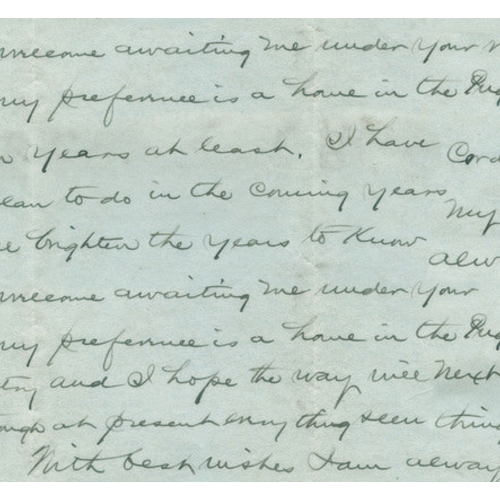 welcome awaiting me under your
my preference is a home in the
years at least. I have
Cord
plan to do in the coming years
My
brighten the years to know
alw
welcome awaiting me under your
my preference is a home in the
and I hope the way will next
at present everything seem
With best wishes I am alway